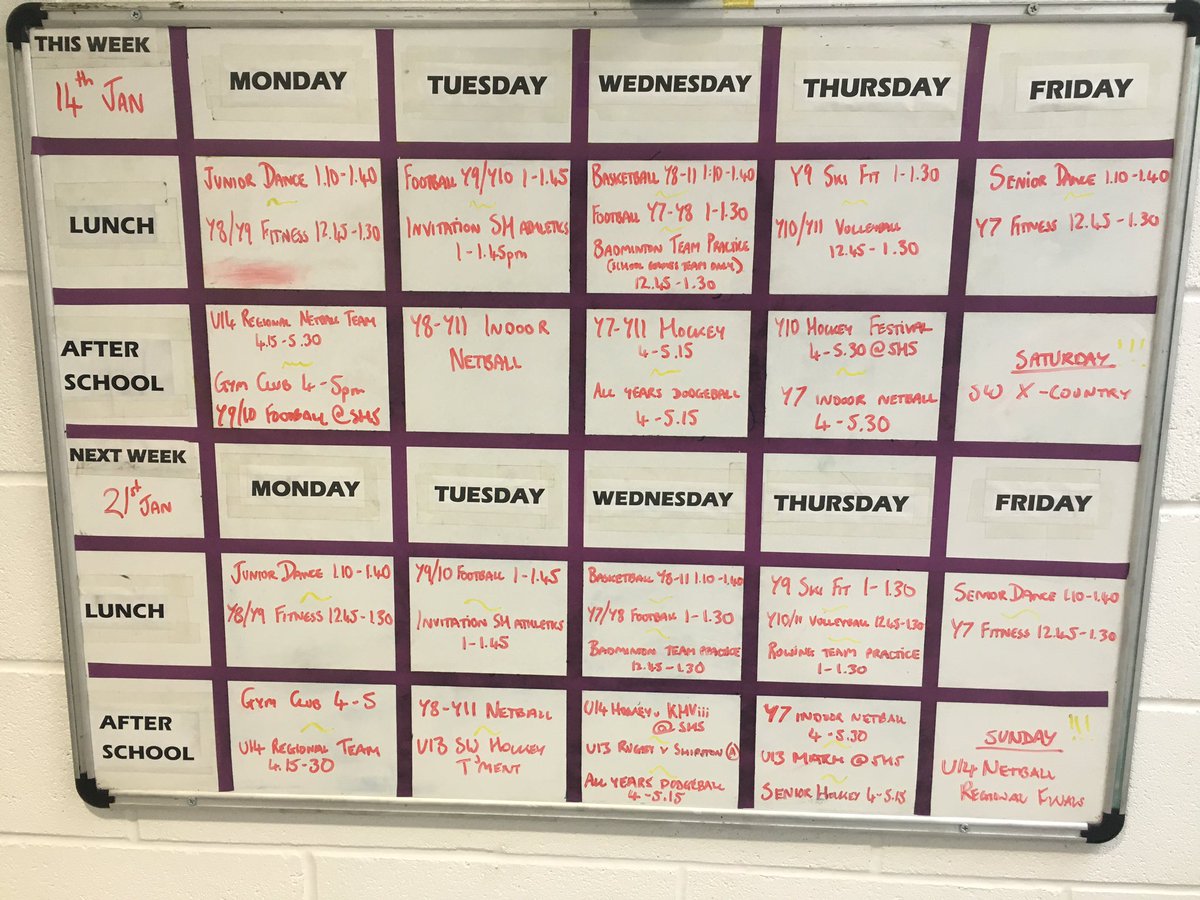 THIS WEEK
14th JAN
MONDAY
TUESDAY
WEDNESDAY
THURSDAY
FRIDAY
LUNCH
JUNIOR DANCE 1.10-1.40
Y8/Y9 FITNESS 12.45-1.30
FOOTBALL Y9/Y10 1-1.45
INVITATION SH ATHLETICS
1-1.45pm
BASKETBALL Y8-11 1:10-1.40
FOOTBALL Y7-Y8 1-1.30
BADMINTON TEAM PRACTICE
(SCHOOL GAMES TEAM ONLY)
12.45-1.30
Y9 SKI FIT 1-1.30
Y10/Y11 VOLLEYBALL
12.45-1.30
SENIOR DANCE 1.10-1.40
Y7 FITNESS 12.45-1.30
AFTER
SCHOOL
U14 REGIONAL NETBALL TEAM
4.15-5.30
GYM CLUB 4-5pm
Y9/10 FOOTBALL @SHS
Y8-Y11 INDOOR
NETBALL
Y7-Y11 HOCKEY
4-5.15
ALL YEARS DODGEBALL
4-5.15
Y10 HOCKEY FESTIVAL
4-5.30@SHS
Y7 INDOOR NETBALL
4-5.30
SATURDAY!!!
SW X-COUNTRY
NEXT WEEK
21st JAN
MONDAY
TUESDAY
WEDNESDAY
THURSDAY
FRIDAY
LUNCH
JUNIOR DANCE 1.10-1.40
Y8/Y9 FITNESS 12.45-1.30
Y9/10 FOOTBALL 1-1.45
INVITATION SH ATHLETICS
1-1.45
BASKETBALL Y8-11 1.10-1.40
Y7/Y8 FOOTBALL 1-1.30
BADMINTON TEAM PRACTICE
12.45-1.30
Y9 SKI FIT 1-1.30
Y10/11 VOLLEYBALL 12.45-1.30
ROWING TEAM PRACTICE
1-1.30
SENIOR DANCE 1.10-1.40
Y7 FITNESS 12.45-1.30
AFTER
SCHOOL
GYM CLUB 4-5
U14 REGIONAL TEAM
4.15-30
Y8-Y11 NETBALL
U13 SW HOCKEY
T'MENT
U14 HOCKEY v KHViii
@SHS
U13 RUGBY v SHIPSTON (A)
ALL YEARS DODGEBALL
4-5.15
Y7 INDOOR NETBALL
4-5.30
U13 MATCH @SHS
SENIOR HOCKEY 4-5.15
SUNDAY !!!
U14 NETBALL
REGIONAL FINALS